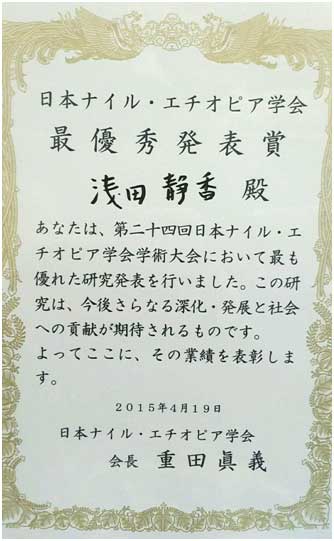 日本ナイル・エチオピア学会
最優秀発表賞
浅田静香 殿
あなたは、第二十四回日本ナイル・エ
チオピア学会学術大会において最も
優れた研究発表を行いました。この研
究は、今後さらなる深化・発展と社会
への貢献が期待されるものです。
よってここに、その業績を表彰しま
す。
2015年4月19日
日本ナイル・エチオピア学会
会長 重田眞義